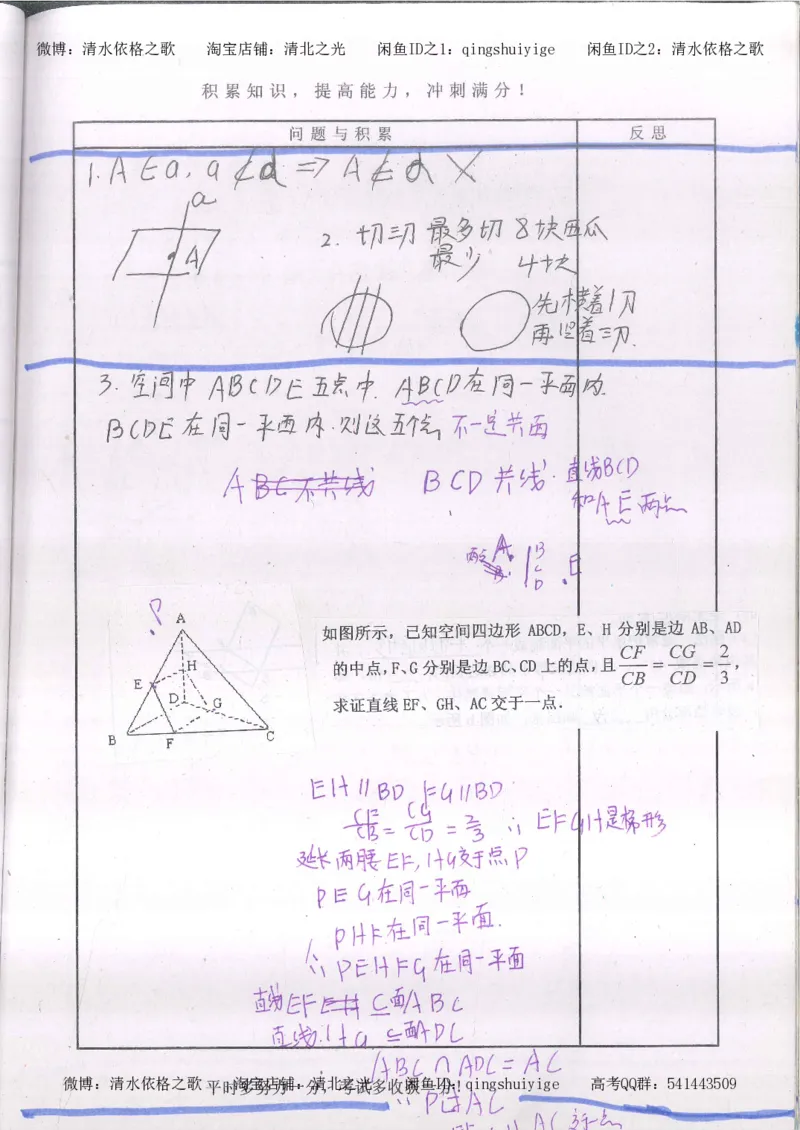 微博：清水依格之歌 淘宝店铺：清北之光 闲鱼ID之1：qingshuiyige 闲鱼ID之2：清水依格之歌
积累知识，提高能力，冲刺满分！
问题与积累 反思
1. A∈a, a⊄α ⇒ A∉α ×
a
A
2. 切三刀 最多切 8块西瓜
最少 4块
先横着1刀
再竖着三刀.
3. 空间中 ABCDE五点中. ABCD在同一平面内.
BCDE在同一平面内.则这五个点 不一定共面
A BC不共线 BCD共线. 直线BCD
和A E两点
A B
C
D E
?
A
H
E
D G
B F C
如图所示，已知空间四边形 ABCD，E、H 分别是边 AB、AD
的中点，F、G 分别是边 BC、CD 上的点，且 CF/CB = CG/CD = 2/3，
求证直线 EF、GH、AC 交于一点.
EH∥BD FG∥BD
CF/CB = CG/CD = 2/3 ∴ EFGH是梯形
延长两腰EF,HG交于点P
PEG在同一平面
PHF在同一平面.
∴ PEHFG在同一平面
直线EF ⊆面ABC
直线HG ⊆面ADC
ABC∩ADC=AC
微博：清水依格之歌 淘宝店铺：清北之光 闲鱼ID：qingshuiyige 高考QQ群：541443509
平时多努力一分，考试多收获一份！
∴P∈AC